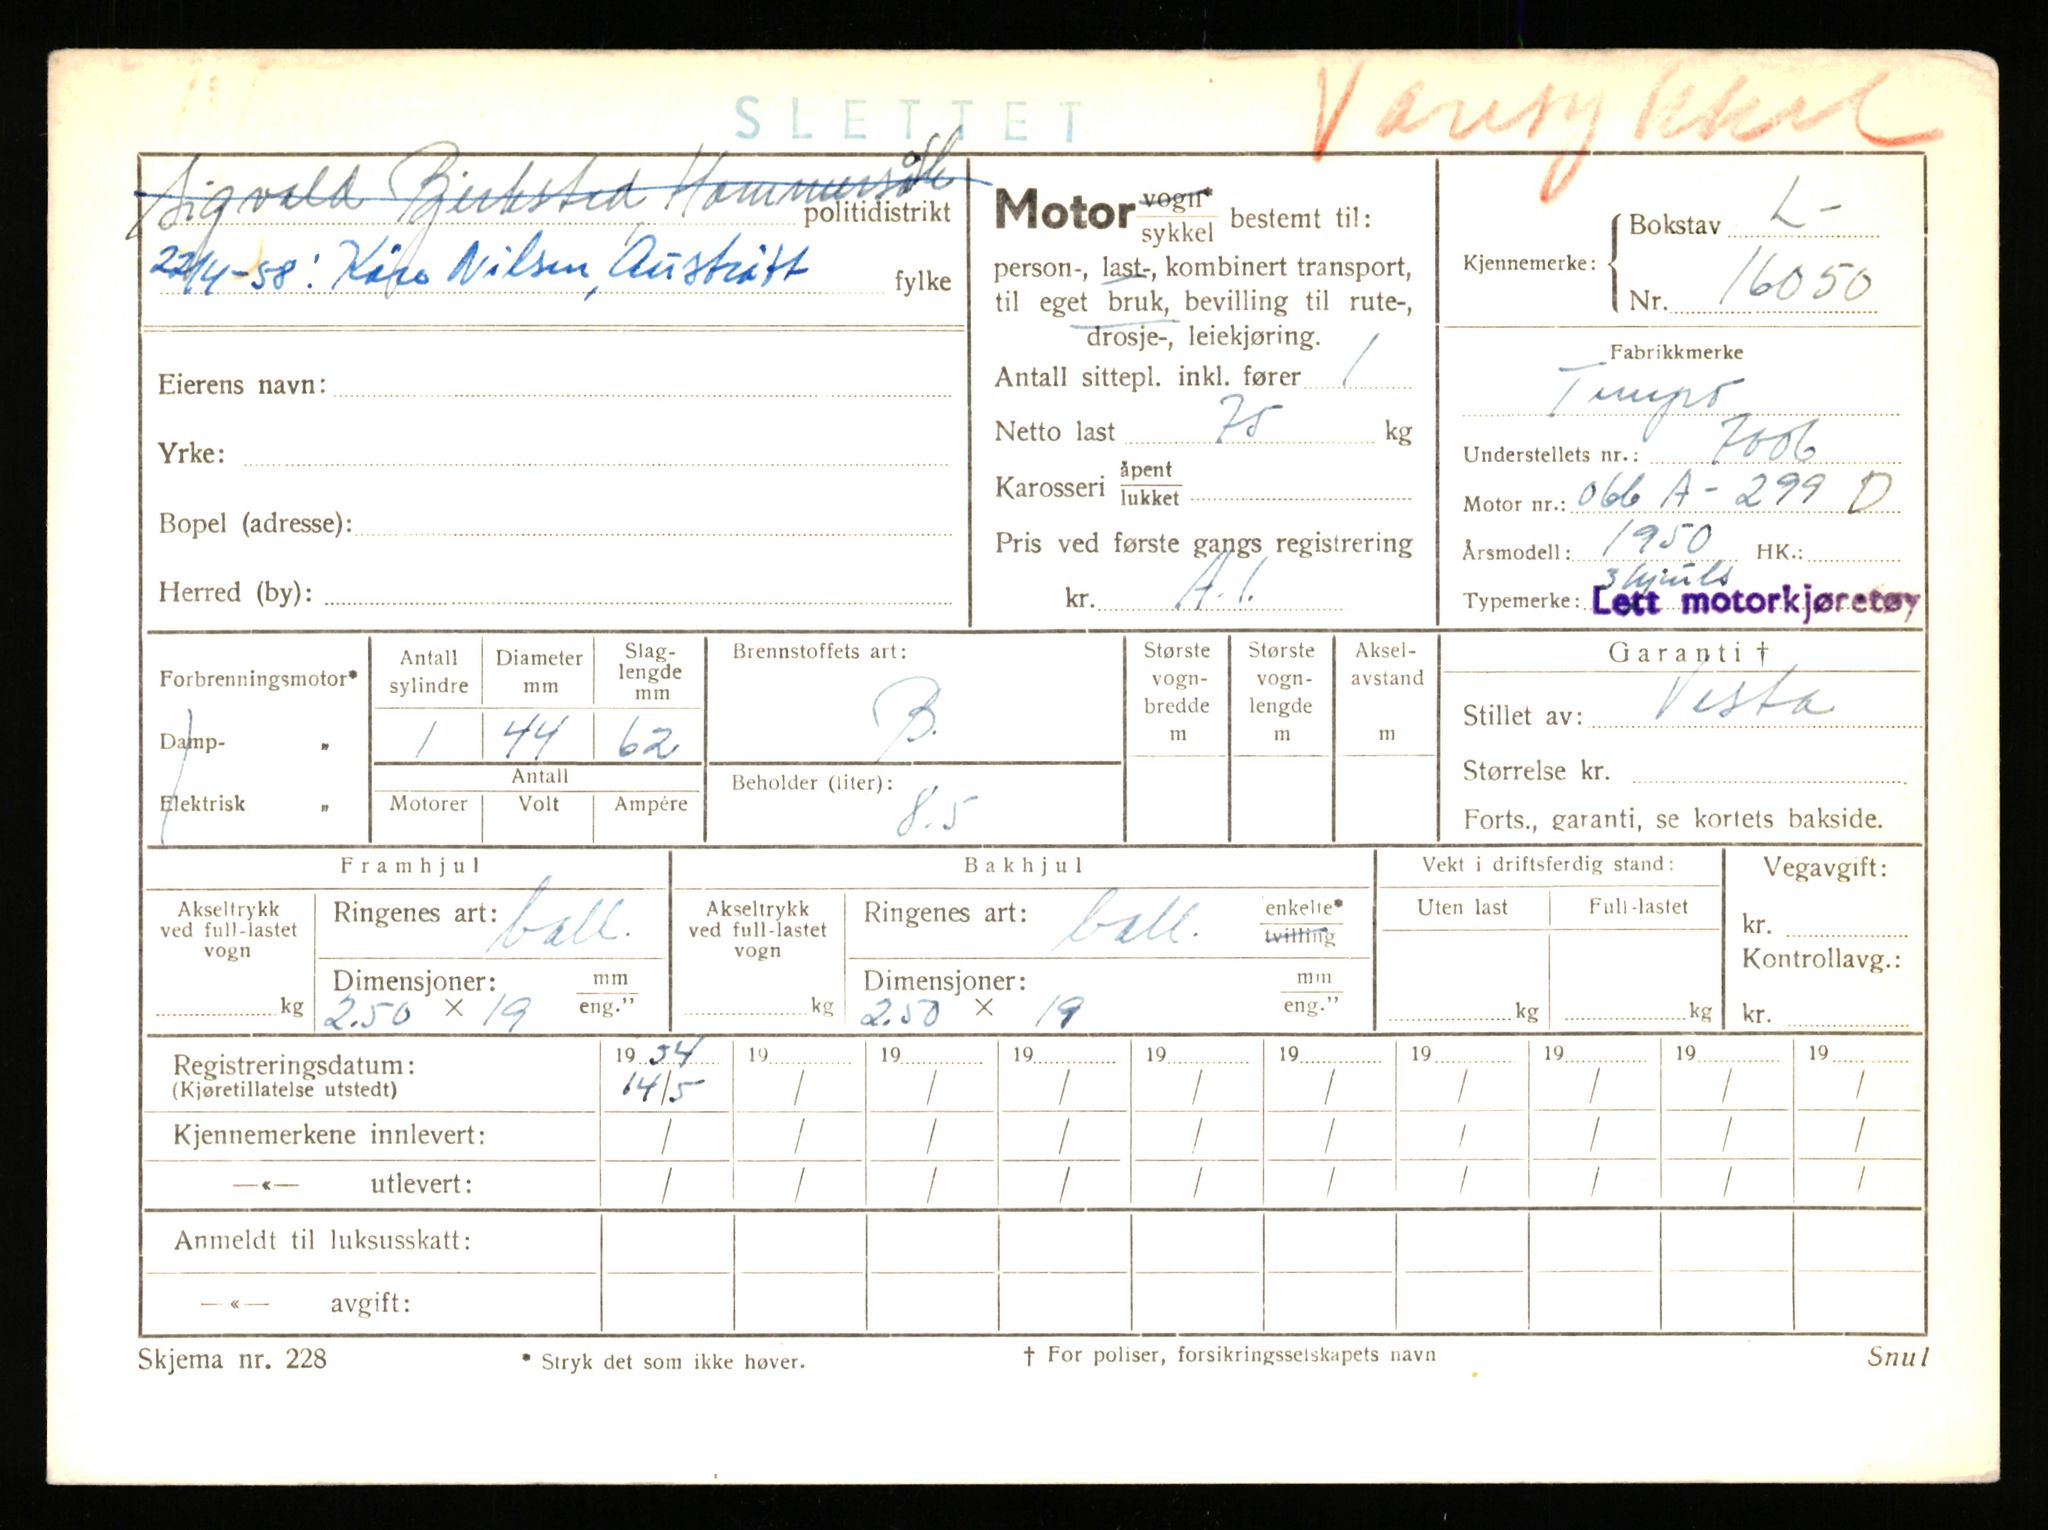 SLETTET
Varesykkel
Sigvald Bjerksted Hommersåk
politidistrikt
22/4-58: Kåre Nilsen, Austrått
fylke
Eierens navn:
Yrke:
Bopel (adresse):
Herred (by):
Motor vogn* sykkel bestemt til:
person-, last-, kombinert transport,
til eget bruk, bevilling til rute-,
drosje-, leiekjøring.
Antall sittepl. inkl. fører 1
Netto last 75 kg
Karosseri åpent lukket
Pris ved første gangs registrering
kr. A.I.
Kjennemerke: Bokstav L-
Nr. 16050
Fabrikkmerke
Tempo
Understellets nr.: 7006
Motor nr.: 066 A-299 D
Årsmodell: 1950 HK.:
3 hjuls
Typemerke: Lett motorkjøretøy
Forbrenningsmotor*
Damp- „
Elektrisk „
Antall sylindre
Diameter mm
Slag-lengde mm
1 44 62
Antall
Motorer Volt Ampére
Brennstoffets art:
B.
Beholder (liter):
8.5
Største vogn-bredde m
Største vogn-lengde m
Aksel-avstand m
Garanti †
Stillet av: Vesta
Størrelse kr.
Forts., garanti, se kortets bakside.
Framhjul
Akseltrykk ved full-lastet vogn
kg
Ringenes art: ball.
Dimensjoner: mm eng."
2.50 × 19
Bakhjul
Akseltrykk ved full-lastet vogn
kg
Ringenes art: ball. enkelte* tvilling
Dimensjoner: mm eng."
2.50 × 19
Vekt i driftsferdig stand:
Uten last Full-lastet
kg kg
Vegavgift:
kr.
Kontrollavg.:
kr.
Registreringsdatum: 19 54 19 19 19 19 19 19 19 19 19
(Kjøretillatelse utstedt) 14/5 / / / / / / / / /
Kjennemerkene innlevert: / / / / / / / / / /
—«— utlevert: / / / / / / / / / /
Anmeldt til luksusskatt:
—«— avgift:
Skjema nr. 228
* Stryk det som ikke høver.
† For poliser, forsikringsselskapets navn
Snul